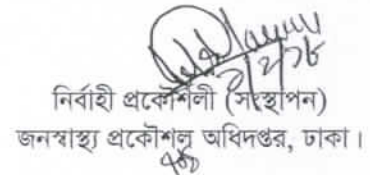 নির্বাহী প্রকৌশলী (সংস্থাপন)
জনস্বাস্থ্য প্রকৌশল অধিদপ্তর, ঢাকা।